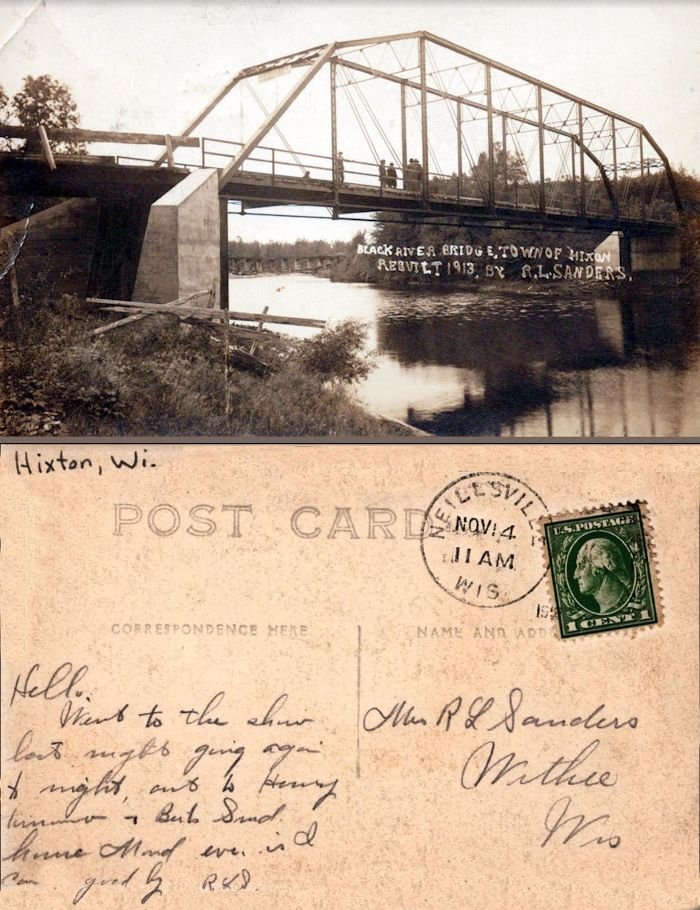 BLACK RIVER BRIDGE, TOWN OF HIXON
REBUILT 1913, BY R.L. SANDERS.
Hixton, Wi.
POST CARD
NEILLSVILLE
NOV 14
11 AM
WIS.
U.S. POSTAGE
1 CENT 1
CORRESPONDENCE HERE
NAME AND ADD
Hello.
Went to the show
last night going again
to night, out to Henry
& Berts Sund
home Mond eve. if I
can good by RLS.
Mrs R L Sanders
Withee
Wis